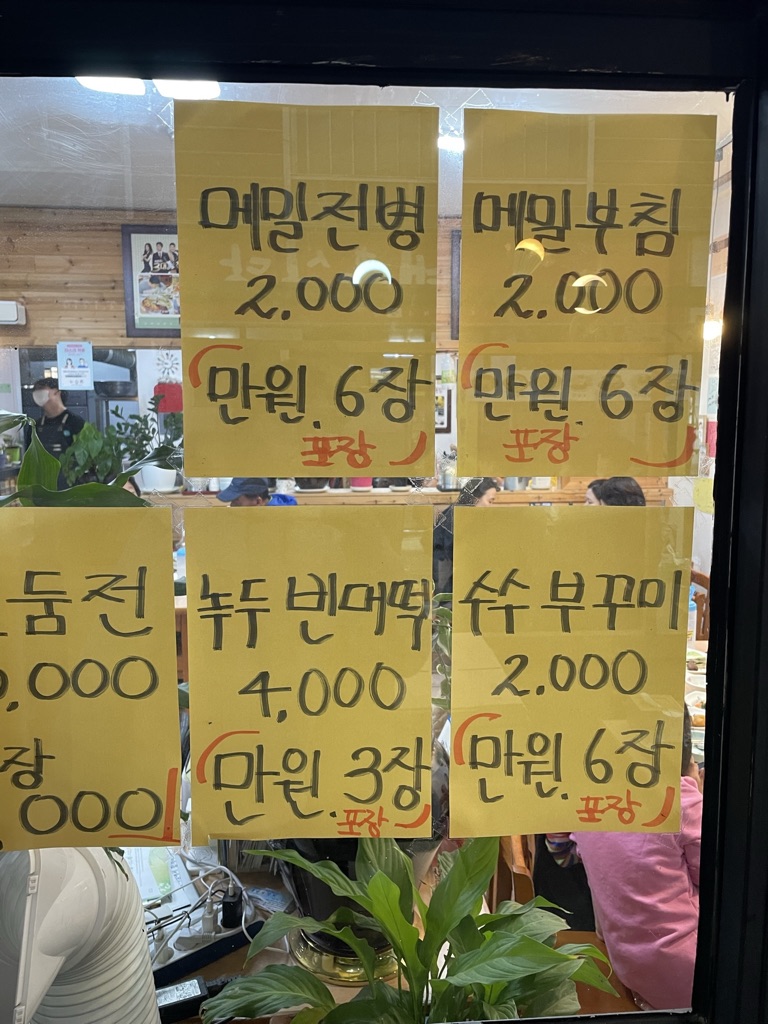 메밀전병
2.000
만원. 6장
포장
메밀부침
2.000
만원. 6장
포장
둠전
,000
장
000
녹두 빈대떡
4,000
만원. 3장
포장
수수 부꾸미
2.000
만원. 6장
포장